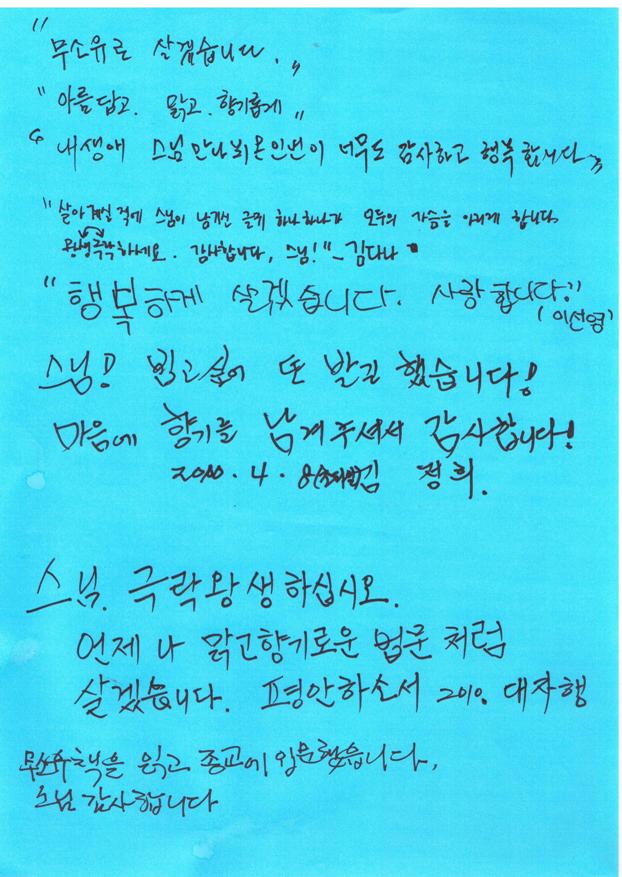 "무소유로 살겠습니다."
"아름답고. 맑고. 향기롭게"
"내생애 스님만나뵈온인연이 너무도 감사하고 행복합니다"
"살아계실적에 스님이 남기신 글귀 하나하나가 모두의 가슴을 아리게 합니다.
왕생극락하세요. 감사합니다, 스님!" - 김다나
"행복하게 살겠습니다. 사랑합니다."
(이선영)
스님! 뵙고싶어 또 발길 했습니다!
마음에 향기를 남겨주셔서 감사합니다!
2010. 4. 8 김 정희.
스님. 극락왕생하십시오.
언제나 맑고향기로운 법문처럼
살겠습니다. 평안하소서 2010. 대자행
무소유책을 읽고 종교에 입문했습니다.
스님 감사합니다